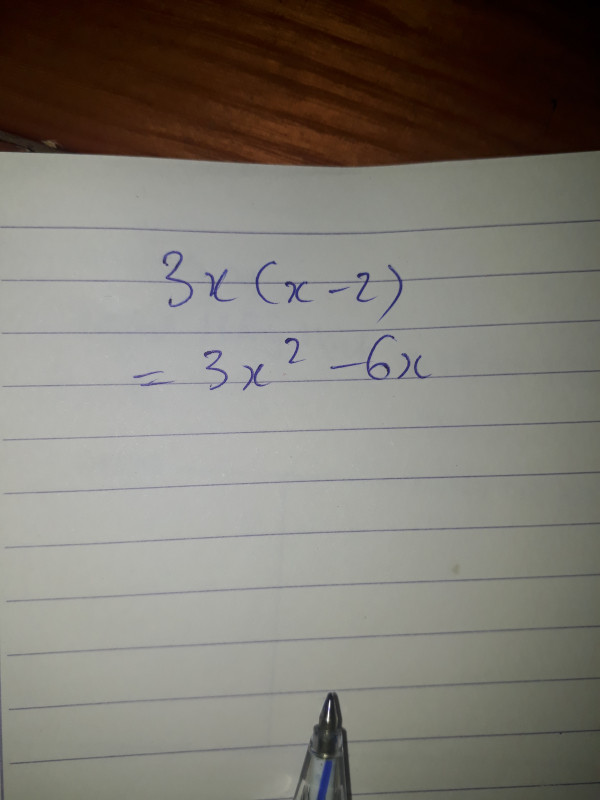 3x(x-2)
= 3x² -6x